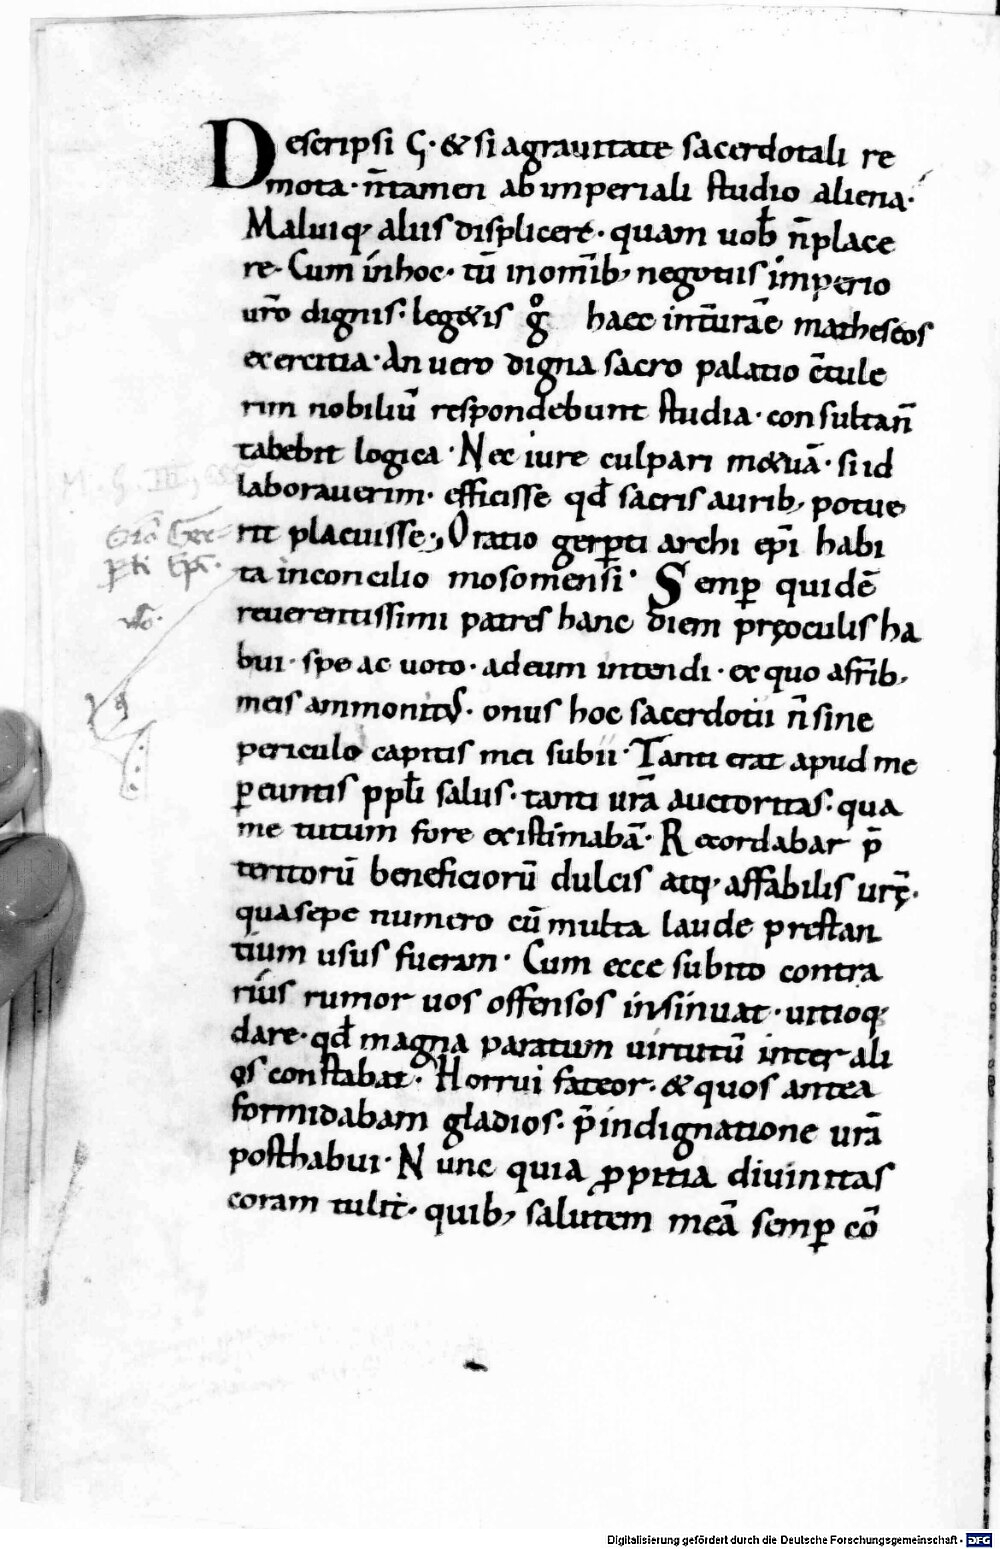 Descripsi Ç· & si agrauitate sacerdotali re
mota· n̄tamen ab imperiali studio aliena·
Maluiq; aliis displicere· quam uob̄ n̄place
re· Cum inhoc· tū inom̄ib; negotiis imperio
ur̄o dignis· leg&is g̊ haec int̄urāe matheseos
exercitia· An uero digna sacro palatio c̄tule
rim nobiliū respondebunt studia· consultan̄
tabebit logica· Nec iure culpari m&uā· si id
laborauerim· efficisse qd̄ sacris aurib; potue
rit placuisse; Oratio gerp̱ti archi ep̄i habi
ta inconcilio mosomensi· Semp̱ quidē
reuerentissimi patres hanc diem pręoculis ha
bui· spe ac uoto· adeum intendi· ex quo afr̄ib;
meis ammonitus· onus hoc sacerdotii n̄ sine
periculo capitis mei subii· Tanti erat apud me
p̱euntis ppl̄i salus· tanti ur̄a auctoritas· qua
me tutum fore existimabā· Recordabar p̄
teritorū beneficiorū dulcis atq; affabilis ur̄ę·
qua sepe numero cū multa laude prestan
tium usus fueram· Cum ecce subito contra
rius rumor uos offensos insinuat· uitioq;
dare· qd̄ magna paratum uirtutū inter ali
os constabat· Horrui fateor· & quos antea
formidabam gladios· p̄ indignatione ur̄a
posthabui· Nunc quia ꝓpitia diuinitas
coram tulit· quib; salutem meā semp̱ cō
Digitalisierung gefördert durch die Deutsche Forschungsgemeinschaft - DFG